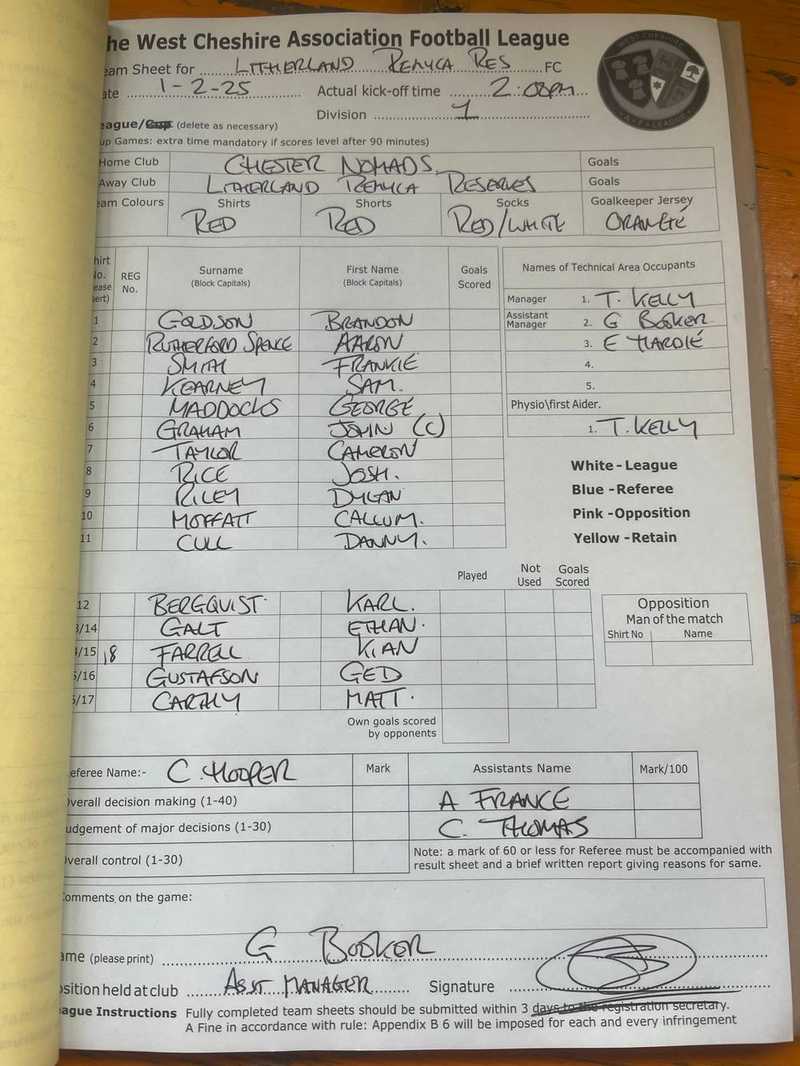 he West Cheshire Association Football League
eam Sheet for LITHERLAND REMYCA RES FC
ate 1-2-25 Actual kick-off time 2:08PM
Division 1
eague/Cup (delete as necessary)
up Games: extra time mandatory if scores level after 90 minutes)
Home Club CHESTER NOMADS. Goals
Away Club LITHERLAND REMYCA RESERVES Goals
eam Colours Shirts Shorts Socks Goalkeeper Jersey
RED RED RED/WHITE ORANGE
hirt No. ease ert) REG No. Surname (Block Capitals) First Name (Block Capitals) Goals Scored
Names of Technical Area Occupants
Manager 1. T. KELLY
Assistant Manager 2. G BOOKER
3. E HARDIE
4.
5.
Physio\first Aider.
1. T. KELLY
1 GOLDSON BRANDON
2 RUTHERFORD SPENCE AARON
3 SMITH FRANKIE
4 KEARNEY SAM.
5 MADDOCKS GEORGE
6 GRAHAM JOHN (C)
7 TAYLOR CAMERON
8 RICE JOSH.
9 RILEY DYLAN
10 MOFFATT CALLUM.
11 CULL DANNY.
White - League
Blue - Referee
Pink - Opposition
Yellow - Retain
Played Not Used Goals Scored
12 BERGQUIST. KARL.
3/14 GALT ETHAN.
4/15 18 FARRELL KIAN
5/16 GUSTAFSON GED
6/17 CARTHY MATT.
Opposition
Man of the match
Shirt No Name
Own goals scored by opponents
eferee Name:- C. HOOPER Mark Assistants Name Mark/100
Overall decision making (1-40) A FRANCE
udgement of major decisions (1-30) C. THOMAS
Overall control (1-30) Note: a mark of 60 or less for Referee must be accompanied with
result sheet and a brief written report giving reasons for same.
omments on the game:
ame (please print) G BOOKER
osition held at club ASST MANAGER Signature
ague Instructions Fully completed team sheets should be submitted within 3 days to the registration secretary.
A Fine in accordance with rule: Appendix B 6 will be imposed for each and every infringement